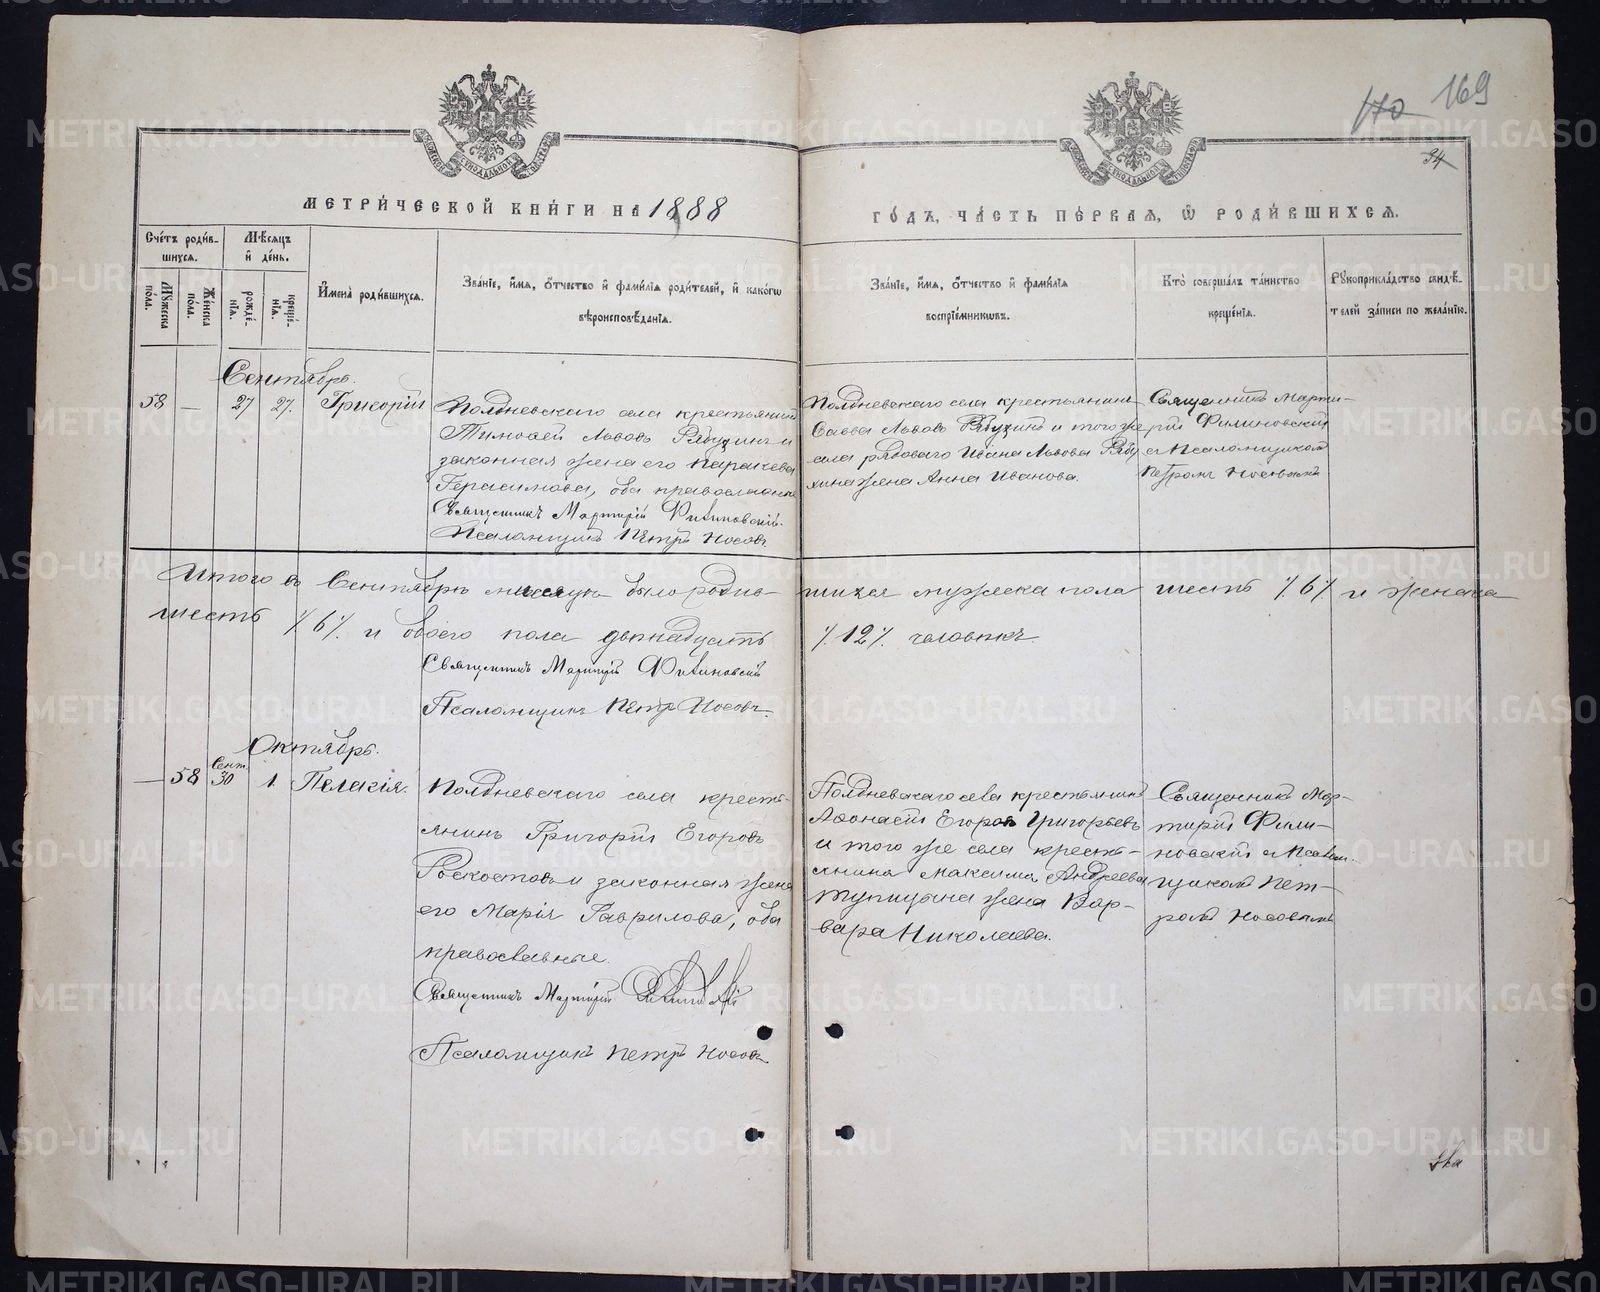 170 169
34
МЕТРИ́ЧЕСКОЙ КНИ́ГИ НА 1888 ГО́ДЪ, ЧА́СТЬ ПЕ́РВАЯ, Ѡ РОДИ́ВШИХСЯ.
Сче́тъ роди́в-
шихся.
Мѣ́сяцъ
и҆ де́нь.
Му́жеска
пола.
Же́нска
по́ла.
рожде́-
нїя.
креще́-
нїя.
И҆мена̀ роди́вшихся.
Зва́нїе, и҆́мя, о҆́тчество и҆ фами́лїя роди́телей, и҆ како́гѡ
вѣроисповѣ́данїя.
Зва́нїе, и҆́мя, о҆́тчество и҆ фами́лїя
воспрїе́мникѡвъ.
Кто̀ соверша́лъ та́инство
креще́нїя.
Рꙋкоприкла́дство свидѣ́-
телей за́писи по жела́нїю.
Сентябрь.
58 — 27 27. Григорій
Полдневскаго села крестьянинъ
Тимоѳей Львовъ Рябухинъ и
законная жена его Параскева
Герасимова, оба православные
Священникъ Мартирій Филиновскій.
Псаломщикъ Петръ Носовъ
Полдневскаго села крестьянинъ
Савва Львовъ Рябухинъ и того же
села рядоваго Ивана Львова Рябу
хина жена Анна Иванова.
Священникъ Марти-
рій Филиновскій
с Псаломщикомъ
Петромъ Носовымъ
Итого въ Сентябрѣ месяцѣ было родив- шихся мужеска пола шесть /.6/. и женска
шесть /.6/. и обоего пола двенадцать /.12/. человѣкъ
Священникъ Мартирій Филиновскій
Псаломщикъ Петръ Носовъ.
Октябрь.
— 58 Сент. 30 1. Пелагія.
Полдневскаго села кресть-
янинъ Григорій Егоровъ
и законная жена
его Марія Гаврилова, оба
православные.
Священникъ Мартирій Филиновскій
Псаломщикъ Петръ Носовъ
Полдневскаго села крестьянинъ
Аѳонасій Егоровъ Григорьевъ
и того же села кресть-
янина Максима Андреева
Тупицына жена Вар-
вара Николаева.
Священникъ Мар-
тирій Фили-
новскій с Псалом-
щикомъ Пет-
ромъ Носовымъ
METRIKI.GASO-URAL.RU